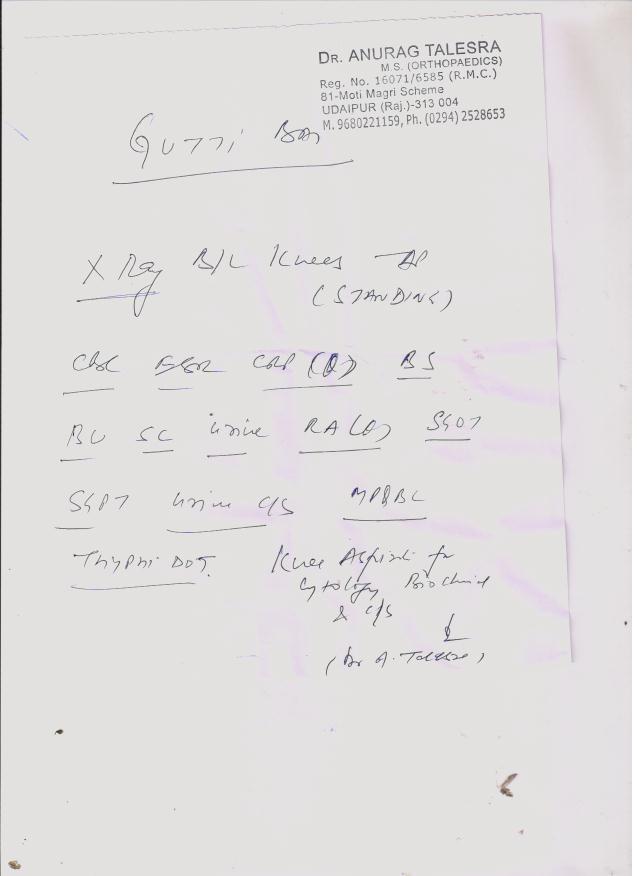 DR. ANURAG TALESRA
M.S. (ORTHOPAEDICS)
Reg. No. 16071/6585 (R.M.C.)
81-Moti Magri Scheme
UDAIPUR (Raj.)-313 004
M. 9680221159, Ph. (0294) 2528653
X Ray B/L Knees AP
(STANDING)
CBC ESR CRP (Q) BS
BU SC Urine RA (Q) SGOT
SGPT Urine C/S MPQBC
THYPHI DOT Knee Aspirat for
Cytology Biochemi
& C/S
(Dr A. Talesra)